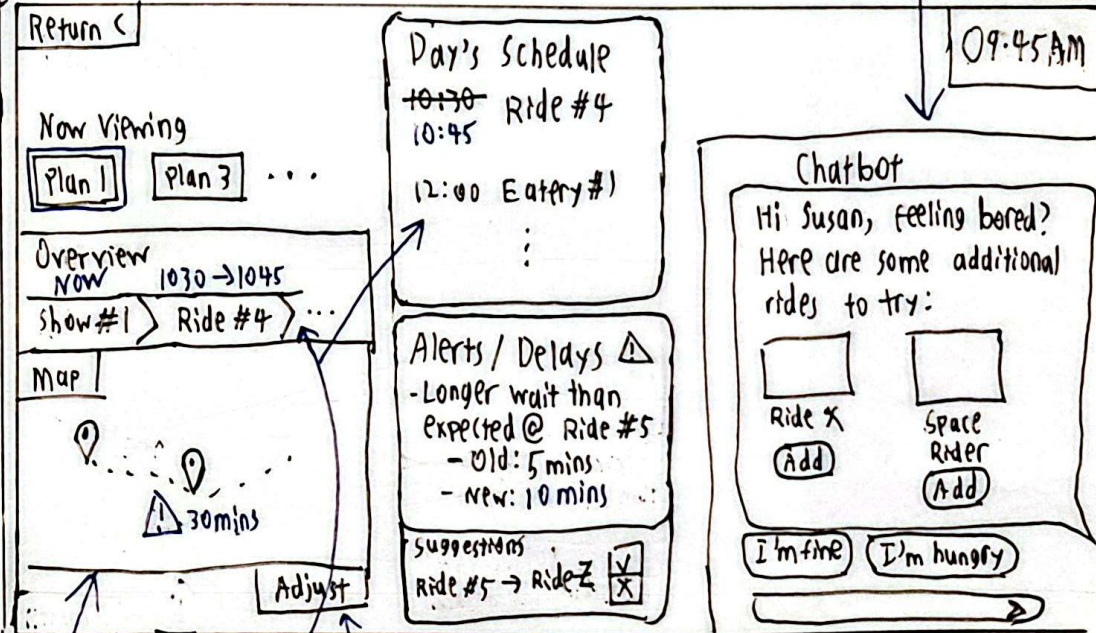 Return <
09:45AM
Now Viewing
Plan 1
Plan 3 ...
Overview
NOW 1030→1045
show #1 Ride #4 ...
Map
30mins
Adjust
Day's Schedule
10:30 Ride #4
10:45
12:00 Eatery #1
Alerts / Delays !
-Longer wait than
expected @ Ride #5
- Old: 5 mins
- New: 10 mins
suggestions
Ride #5 → Ride Z
Chatbot
Hi Susan, feeling bored?
Here are some additional
rides to try:
Ride X
Add
Space
Rider
Add
I'm fine
I'm hungry